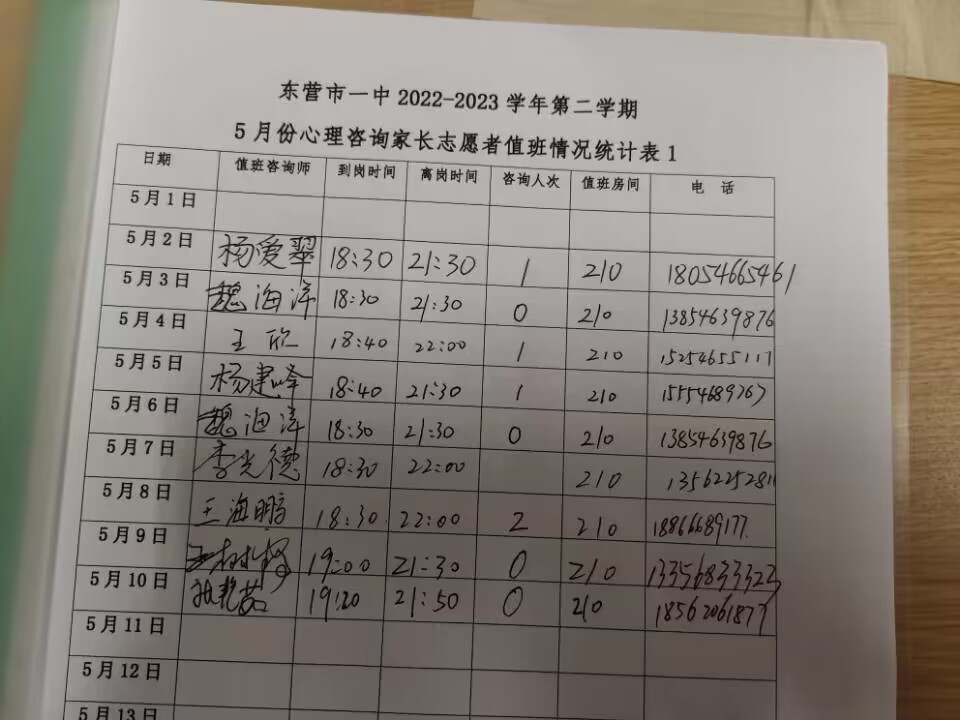 东营市一中 2022-2023 学年第二学期
5 月份心理咨询家长志愿者值班情况统计表 1
日期 值班咨询师 到岗时间 离岗时间 咨询人次 值班房间 电 话
5 月 1 日
5 月 2 日 杨爱翠 18:30 21:30 1 210 18054665461
5 月 3 日 魏海洋 18:30 21:30 0 210 13854639876
5 月 4 日 王欣 18:40 22:00 1 210 15254655111
5 月 5 日 杨建峰 18:40 21:30 1 210
5 月 6 日 魏海洋 18:30 21:30 0 210 13854639876
5 月 7 日 李光德 18:30 22:00 210
5 月 8 日 王海鹏 18:30 22:00 2 210 18866689177
5 月 9 日 19:00 21:30 0 210 13356833323
5 月 10 日 19:20 21:50 0 210 18562061877
5 月 11 日
5 月 12 日
5 月 13 日